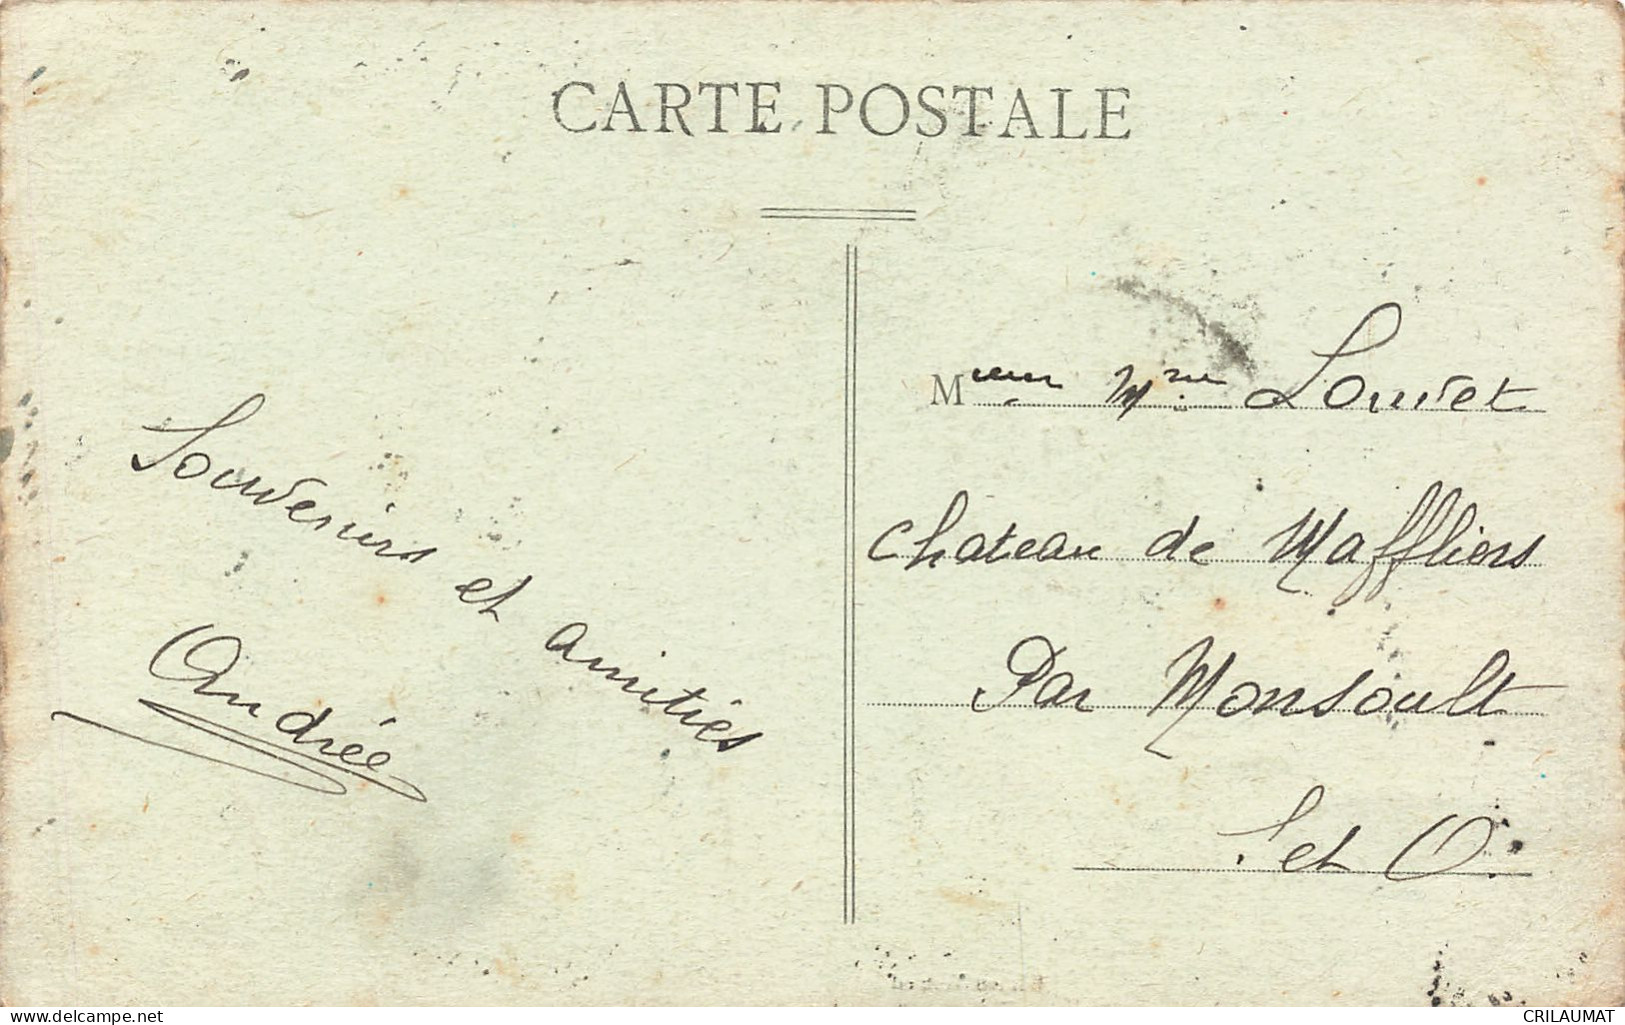 CARTE POSTALE
Souvenirs et amitiés
Andrée
M Mme Louvet
Chateau de Maffliers
Par Monsoult
S et O.
www.delcampe.net
CRILAUMAT